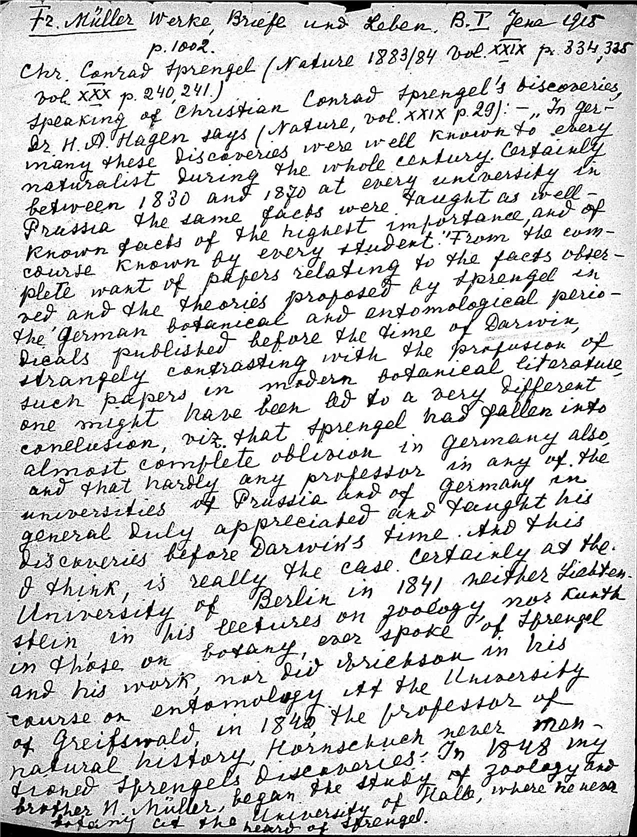 Fr. Müller Werke, Briefe und Leben. B. I Jena 1915
p. 1002.
Chr. Conrad Sprengel (Nature 1883/84 vol. XXIX p. 334, 335
vol. XXX p. 240, 241.)
Speaking of Christian Conrad Sprengel's discoveries,
Dr H. A. Hagen says (Nature, vol. XXIX p. 29): – "In Ger-
many these discoveries were well known to every
naturalist during the whole century. Certainly
between 1830 and 1870 at every university in
Prussia the same facts were taught as well-
known facts of the highest importance, and of
course known by every student." From the com-
plete want of papers relating to the facts obser-
ved and the theories proposed by Sprengel in
the German botanical and entomological perio-
dicals published before the time of Darwin,
strangely contrasting with the profusion of
such papers in modern botanical literature,
one might have been led to a very different
conclusion, viz. that Sprengel had fallen into
almost complete oblivion in Germany also,
and that hardly any professor in any of the
universities of Prussia and of Germany in
general duly appreciated and taught his
discoveries before Darwin's time. And this
I think, is really the case. Certainly at the
University of Berlin in 1841 neither Lichten-
stein in his lectures on zoology nor Kunth
in those on botany, ever spoke of Sprengel
and his work, nor did Erichson in his
course on entomology. At the University
of Greifswald, in 1840, the professor of
natural history, Hornschuch never men-
tioned Sprengels discoveries. In 1848 my
brother H. Müller, began the study of zoology and
botany at the University of Halle, where he never
heard of Sprengel.